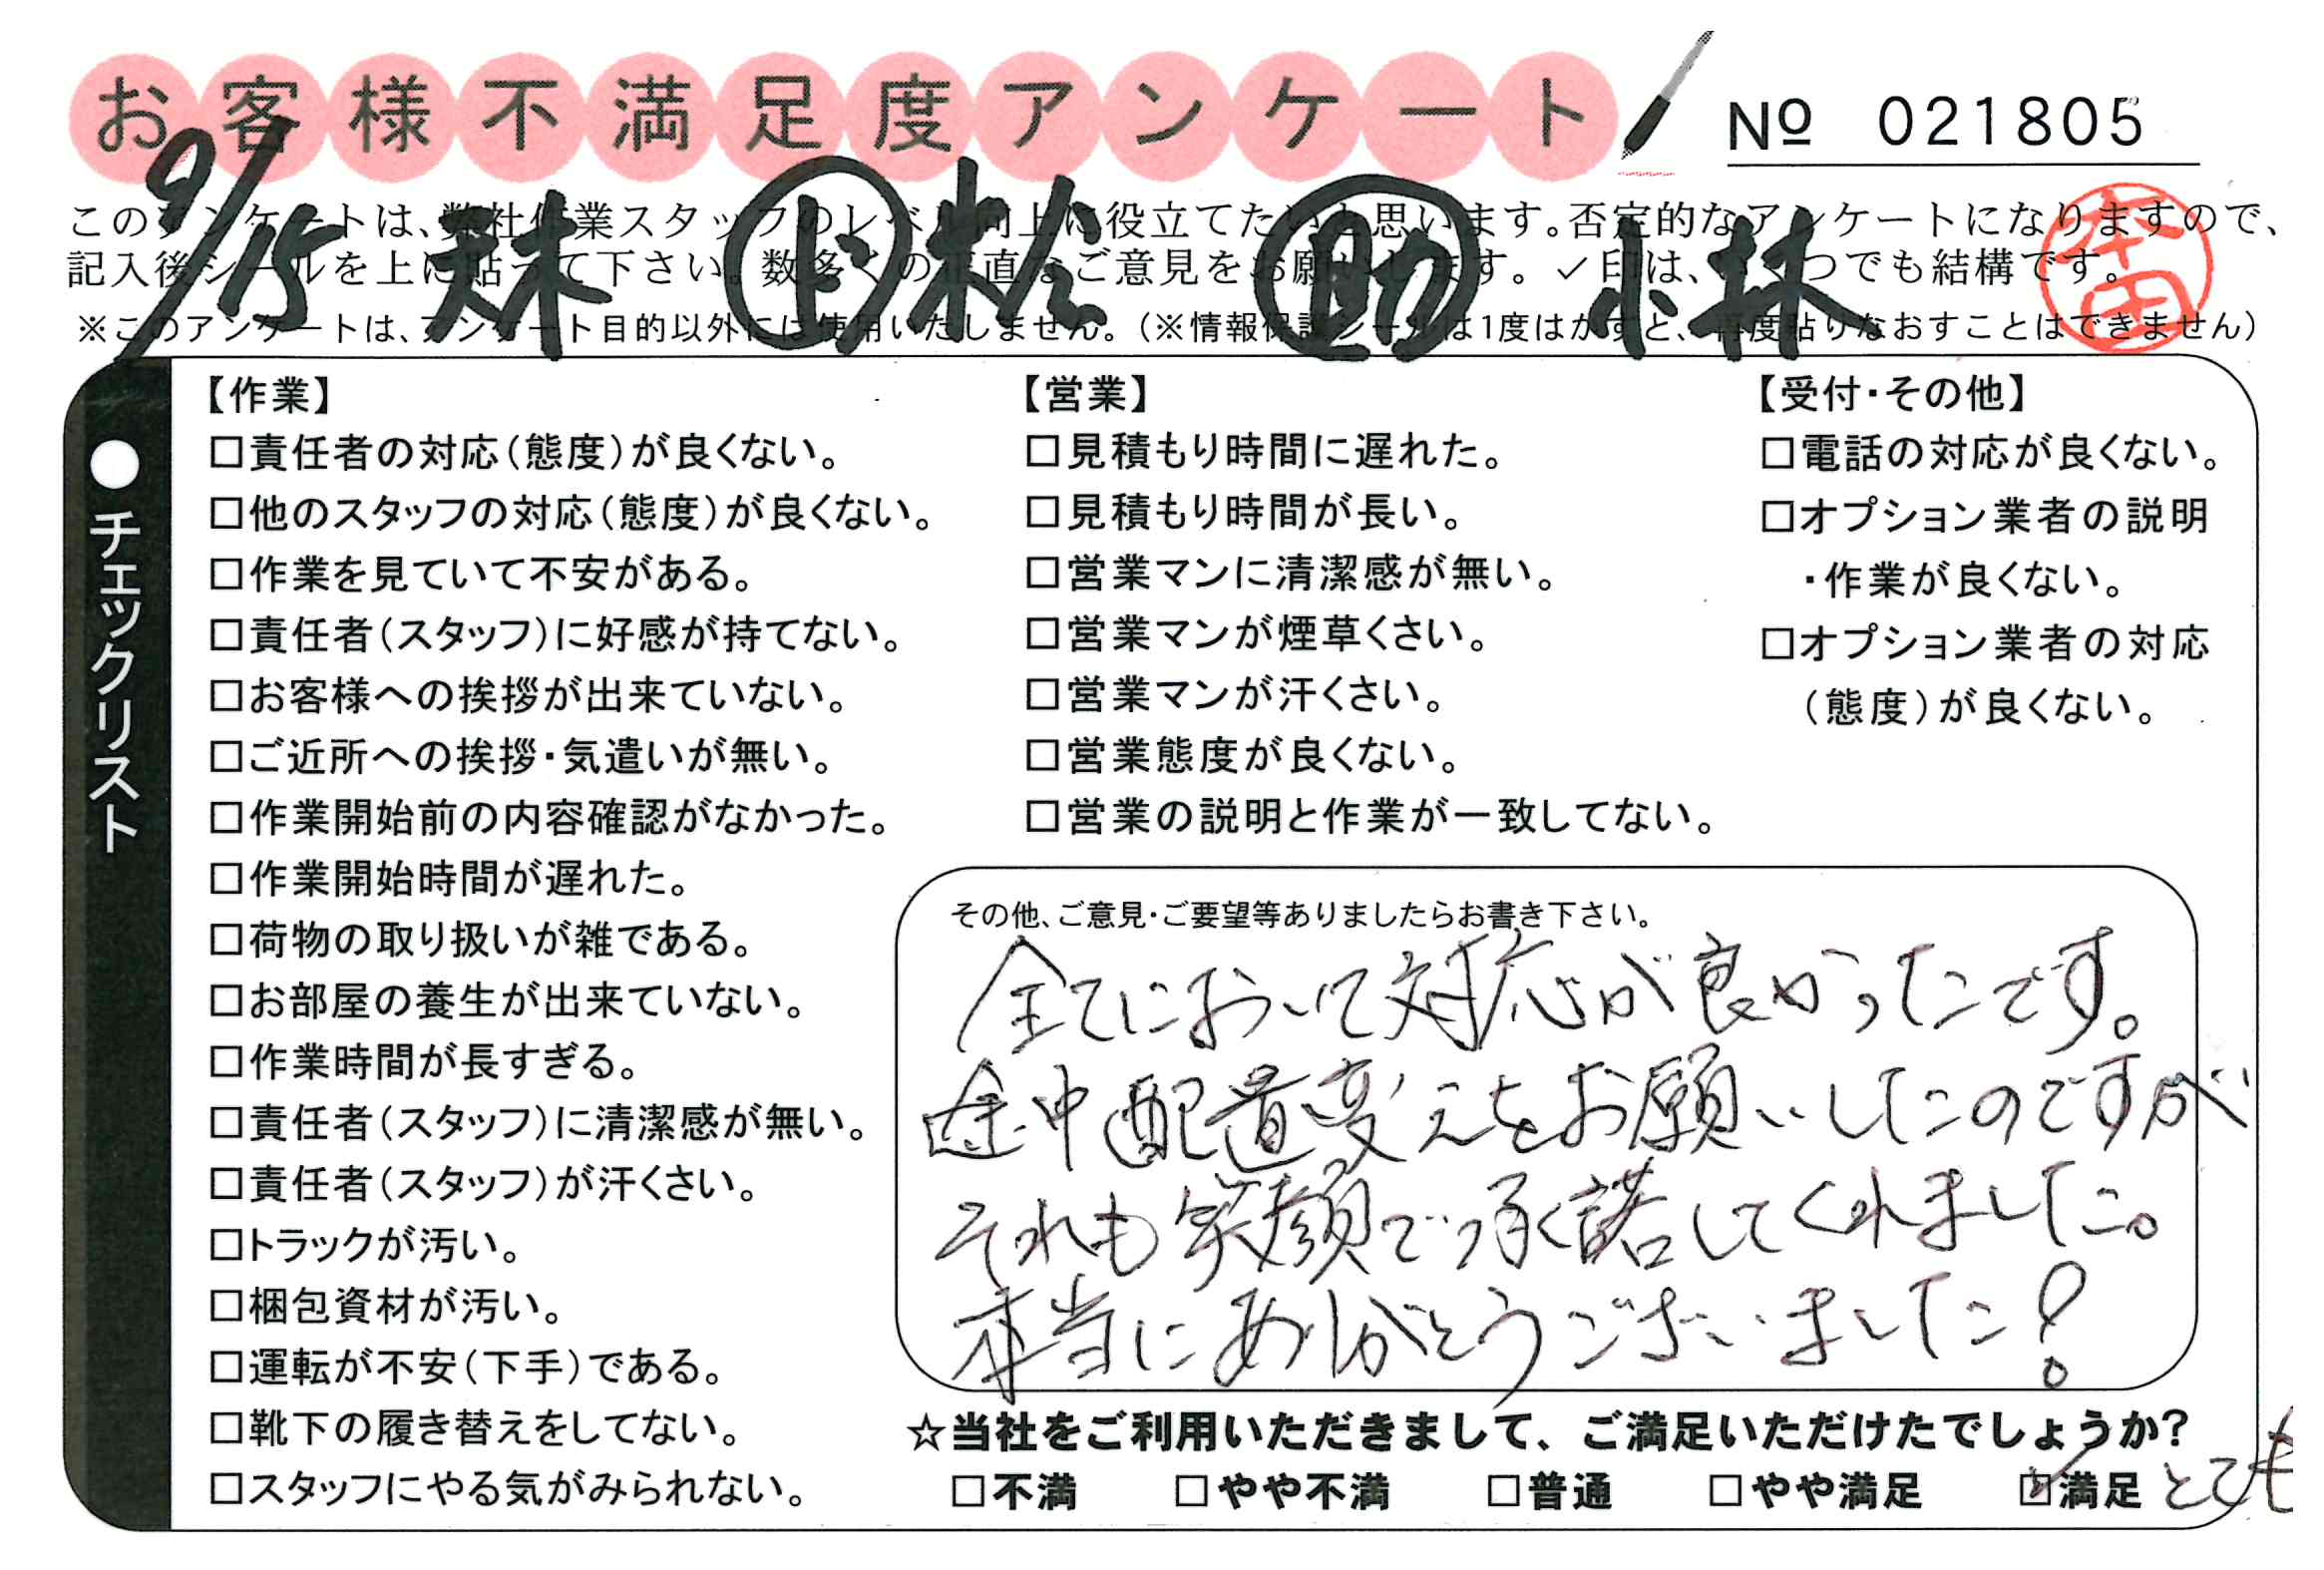 お客様不満足度アンケート
№ 021805
9/15 ド 松 助 小林
本田
このアンケートは、弊社作業スタッフのレベル向上に役立てたいと思います。否定的なアンケートになりますので、
記入後シールを上に貼って下さい。数多くの正直なご意見をお願いします。✓印は、いくつでも結構です。
※このアンケートは、アンケート目的以外には使用いたしません。（※情報保護シールは1度はがすと、再度貼りなおすことはできません）
●チェックリスト
【作業】
□責任者の対応（態度）が良くない。
□他のスタッフの対応（態度）が良くない。
□作業を見ていて不安がある。
□責任者（スタッフ）に好感が持てない。
□お客様への挨拶が出来ていない。
□ご近所への挨拶・気遣いが無い。
□作業開始前の内容確認がなかった。
□作業開始時間が遅れた。
□荷物の取り扱いが雑である。
□お部屋の養生が出来ていない。
□作業時間が長すぎる。
□責任者（スタッフ）に清潔感が無い。
□責任者（スタッフ）が汗くさい。
□トラックが汚い。
□梱包資材が汚い。
□運転が不安（下手）である。
□靴下の履き替えをしてない。
□スタッフにやる気がみられない。
【営業】
□見積もり時間に遅れた。
□見積もり時間が長い。
□営業マンに清潔感が無い。
□営業マンが煙草くさい。
□営業マンが汗くさい。
□営業態度が良くない。
□営業の説明と作業が一致してない。
【受付・その他】
□電話の対応が良くない。
□オプション業者の説明
・作業が良くない。
□オプション業者の対応
（態度）が良くない。
その他、ご意見・ご要望等ありましたらお書き下さい。
全てにおいて対応が良かったです。
途中配置変えをお願いしたのですが
それも笑顔で承諾してくれました。
本当にありがとうございました！
☆当社をご利用いただきまして、ご満足いただけたでしょうか？
□不満 □やや不満 □普通 □やや満足 ☑満足 とても